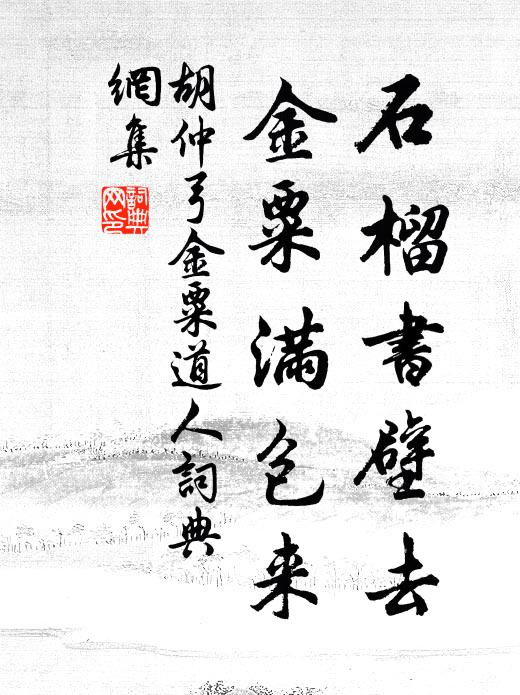 石榴書壁去
金粟满包来
胡仲弓金粟道人詞典
網集
詞典
网印